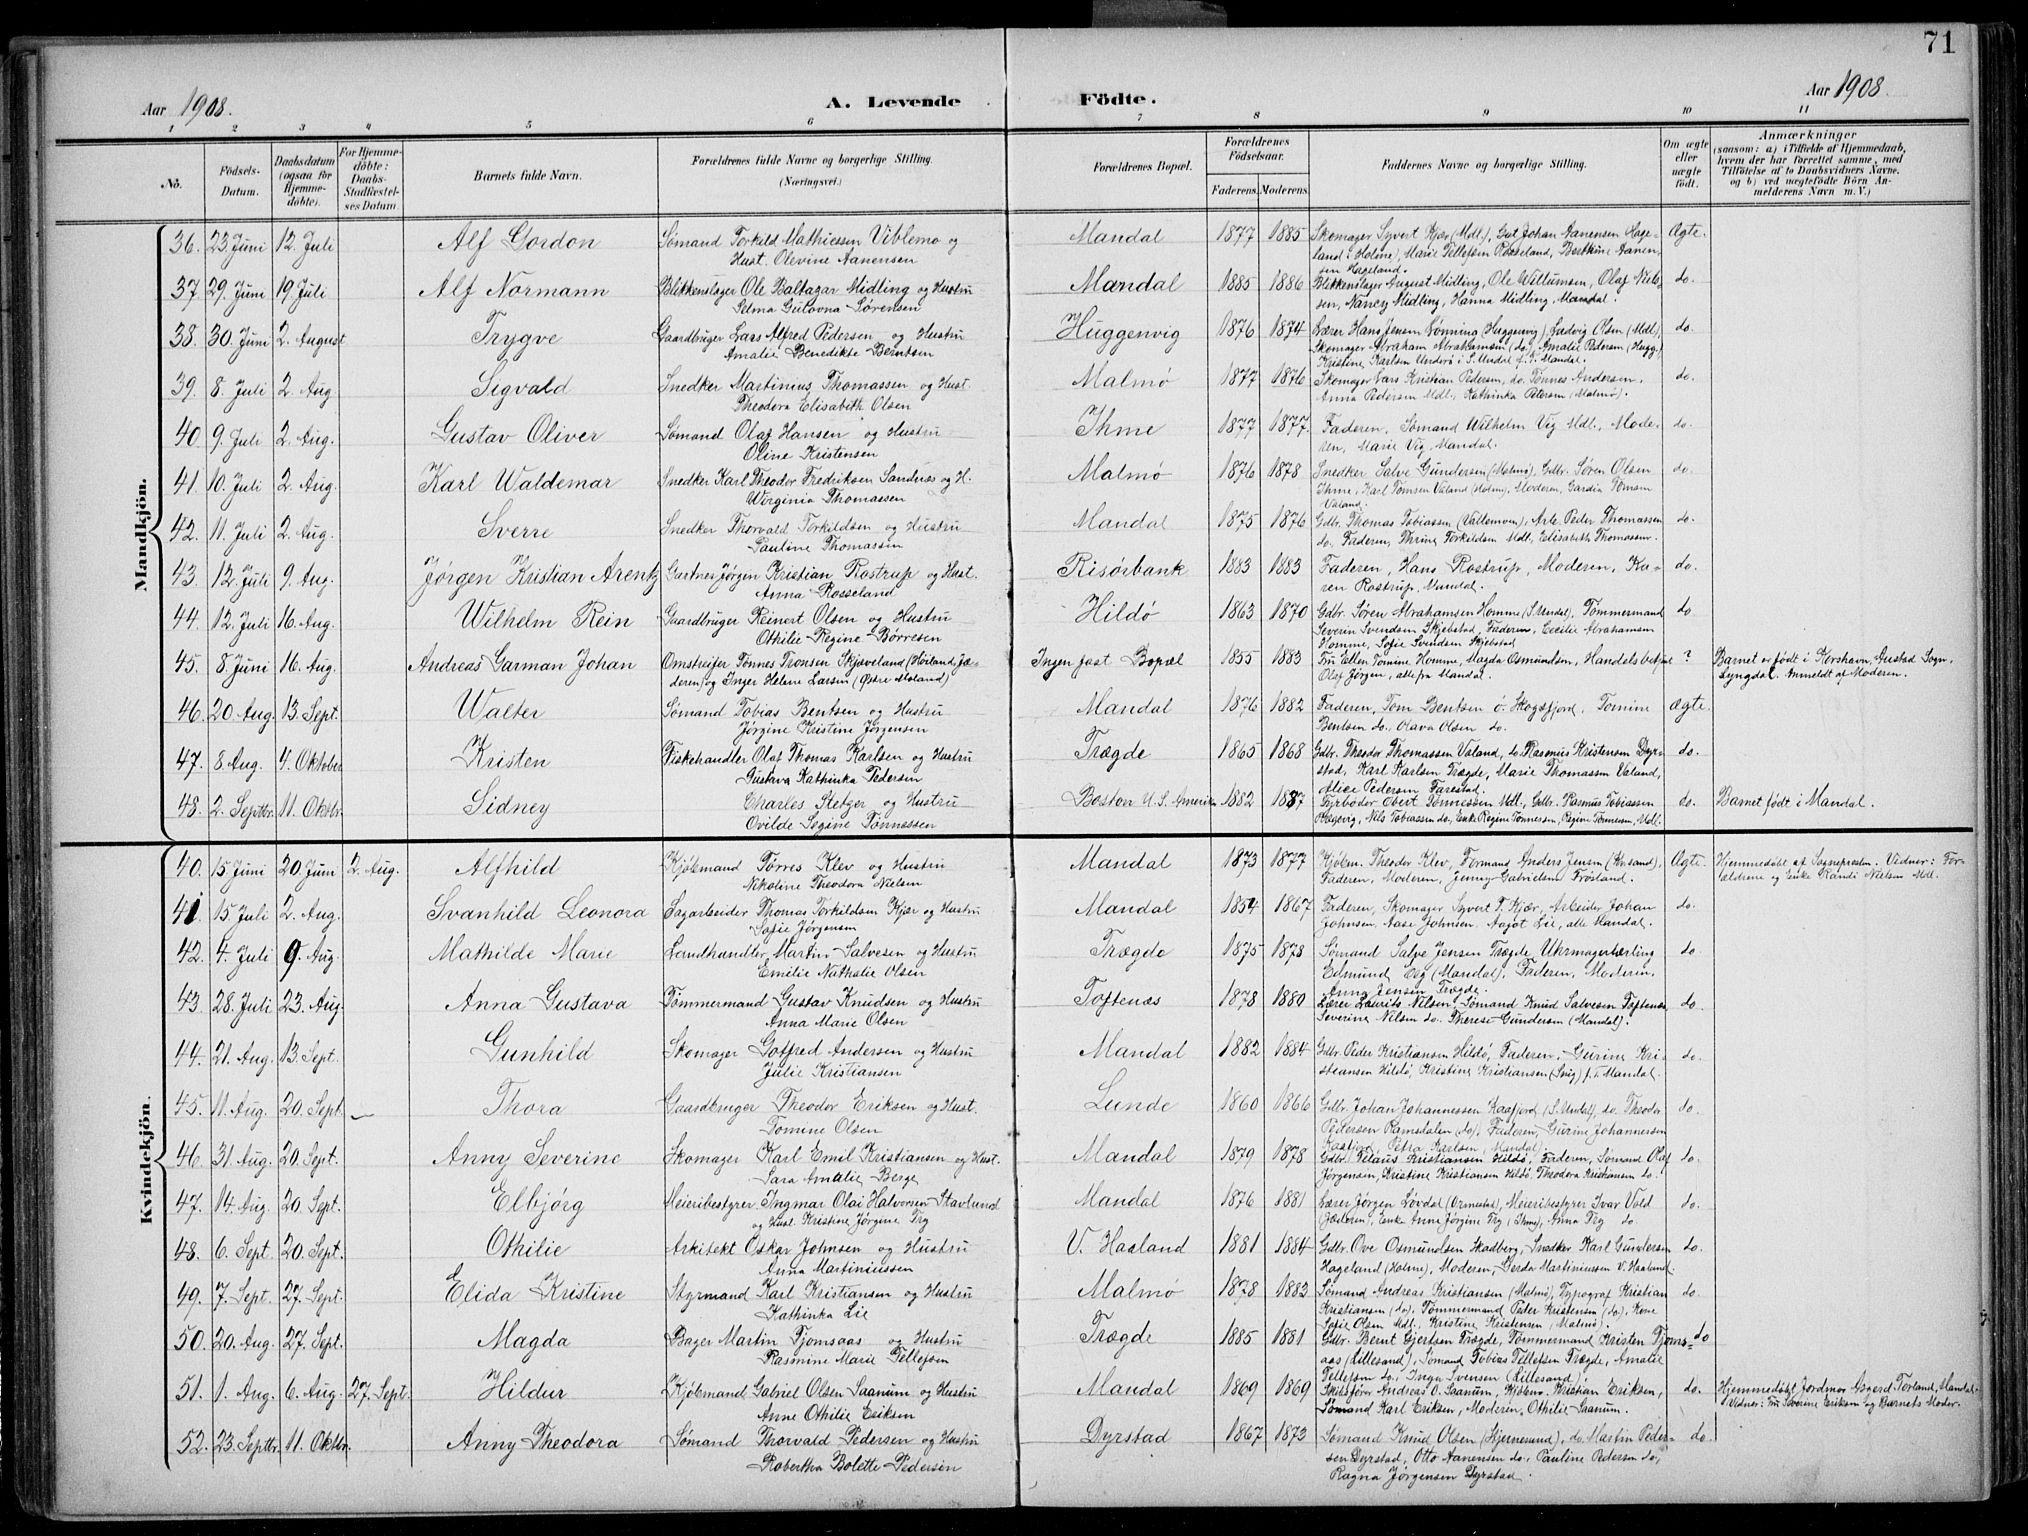 71
Aar 1908.
A. Levende Födte.
Aar 1908.
1 2 3 4 5 6 7 8 9 10 11
No.
Födsels-Datum.
Daabsdatum (ogsaa för Hjemme-döbte).
For Hjemme-döbte: Daabs-Stadfæstelses Datum.
Barnets fulde Navn.
Forældrenes fulde Navne og borgerlige Stilling. (Næringsvei.)
Forældrenes Bopæl.
Forældrenes Födselsaar.
Faderens. Moderens.
Faddernes Navne og borgerlige Stilling.
Om ægte eller uægte födt.
Anmærkninger (saasom: a) i Tilfælde af Hjemmedaab, hvem der har forrettet samme, med Tilföielse af to Daabsvidners Navne, og b) ved uægtefödte Börn Anmelderens Navn m. V.)
Mandkjön.
36. 23 Juni 12. Juli Alf Gordon Sømand Torkild Mathiesen Viblemo og Mandal 1877 1885 Skomager Syvert Kjær (Mdl.), Got. Johan Aanensen Hage- Ægte.
Hust. Olevine Aanensen land i Holme), Marie Tellefsen Rosseland, Bertine Aanen-
sen Hageland.
37. 29. Juni 19. Juli Alf Normann Blikkenslager Ole Baltazar Midling og Hustru Mandal 1885 1886 Blikkenslager August Midling, Ole Willumsen, Olaf Niel- do.
Selma Gulovna Sørensen sen, Nancy Midling, Hanna Midling, Mandal.
38. 30. Juni 2. August Trygve Gaardbruger Lars Alfred Pedersen og Hustru Huggenvig 1876 1874 Lærer Hans Jensen Lønning (Huggenvig), Ludvig Olsen (Mdl.) do.
Amalie Benedikte Berntsen Skomager Abraham Abrahamsen (do), Amalie Pedersen (Hugg.)
Kristine Karlsen Underø i S. Undal f. T. Mandal.
39. 8. Juli 2. Aug. Sigvald Snedker Martinius Thomassen og Hust. Malmø 1877 1876 Skomager Lars Kristian Pedersen, do. Tønnes Andersen, do.
Theodora Elisabeth Olsen Anna Pedersen Mdl., Kathinka Petersen (Malmø).
40. 9. Juli 2. Aug. Gustav Oliver Sømand Olaf Hansen og Hustru Ihme 1877 1877. Faderen, Sømand Wilhelm Vig Mdl., Mode- do.
Oline Kristensen ren, Marie Vig, Mandal.
41. 10. Juli 2. Aug. Karl Waldemar Snedker Karl Theodor Fredriksen Sandnes og H. Malmø 1876 1878 Snedker Salve Gundersen (Malmø), Gdbr. Søren Olsen do.
Virginia Thomassen Ihme, Karl Tomsen Valand (Holme), Moderen, Gardia Tomsen
Valand.
42. 11. Juli 2. Aug. Sverre Snedker Thorvald Torkildsen og Hustru Mandal 1875 1876 Gdbr. Thomas Tobiassen (Valtemoen), Arb. Peder Thomassen do.
Pauline Thomassen do. Faderen, Thrine Torkildsen Mdl., Elisabeth Thomassen.
43. 12. Juli 9. Aug. Jørgen Kristian Arentz Gartner Jørgen Kristian Rostrup og Hust. Risørbank 1883 1883 Faderen, Hans Rostrup, Moderen, Ka- do.
Anna Rosseland ren Rostrup, Mandal.
44. 12. Juli 16. Aug. Wilhelm Rein Gaardbruger Reinert Olsen og Hustru Hildø 1863 1870 Gdbr. Søren Abrahamsen Homme (S. Undal), Tømmermand do
Othilie Regine Børresen Severin Svendsen Skjebstad, Faderen, Cecilie Abrahamsen
Homme, Sofie Svendsen Skjebstad
45. 8. Juni 16. Aug. Andreas Garman Johan Omstreifer Tønnes Tronsen Skjæveland (Höiland, Jæ- Ingen fast Bopæl 1855 1883 Fru Ellen Tomine Homme, Magda Osmundsen, Handelsbetjent ? Barnet er født i Korshavn, Austad Sogn,
deren) og Inger Helene Larsen (Østre Moland) Olaf Jørgen, alle fra Mandal. Lyngdal. Anmeldt af Moderen.
46. 20. Aug. 13. Sept. Walter Sømand Tobias Bentsen og Hustru Mandal 1876 1882 Faderen, Tom Bentsen ö. Skogsfjord, Tomine ægte.
Jörgine Kristine Jørgensen Bentsen do. Olava Olsen do.
47. 8. Aug. 4. Oktober Kristen Fiskehandler Olaf Thomas Karlsen og Hustru Trægde 1865 1868 Gdbr. Theodor Thomassen Valand, do. Rasmus Kristensen Dyr- do.
Gustava Kathinka Pedersen stad, Karl Karlsen Trægde, Marie Thomassen Valand,
Alice Pedersen Farestad.
48. 2. Septbr. 11. Oktbr. Sidney Charles Stetzer og Hustru Boston U.S. Amerika 1882 1887 Fyrbøder Obert Tønnessen Mdl., Gdbr. Rasmus Tobiassen do. Barnet født i Mandal.
Ovilde Segine Tønnessen Hægevig, Nils Tobiassen do, Enke Regine Tønnessen, Regine Tønnesen, Mdl.
Kvindekjön.
40. 15 Juni 20 Juni 2. Aug. Alfhild Kjøbmand Tørres Klev og Hustru Mandal 1873 1877 Kjøbm. Theodor Klev, Formand Anders Jensen (Krsand), Ægte Hjemmedøbt af Sognepresten. Vidner: For-
Nikoline Theodora Nielsen Faderen, Moderen, Jenny Gabrielsen Frösland. ældrene og Enke Randi Nielsen Mdl.
41. 15 Juli 2. Aug. Svanhild Leonora Sagarbeider Thomas Torkildsen Kjær og Hustru Mandal 1854 1867 Faderen, Skomager Syvert T. Kjær, Arbeider Johan do.
Sofie Jørgensen Johnsen, Aase Johnsen, Aagot Lie, alle Mandal.
42. 4. Juli 9. Aug. Mathilde Marie Landhandler Martin Salvesen og Hustru Trægde 1875 1878 Sømand Salve Jensen Trægde, Uhrmagerlærling do.
Emilie Nathalie Olsen Edmund Eeg (Mandal), Faderen, Moderen,
Anna Jensen Trægde.
43. 28. Juli 23. Aug. Anna Gustava Tømmermand Gustav Knudsen og Hustru Toftenæs 1878 1880 Lærer Laurits Nilsen, Sømand Knud Salvesen Toftenæs do.
Anna Marie Olsen Severine Nilsen do. Therese Gundersen (Mandal).
44. 21. Aug. 13. Sept. Gunhild Skomager Gotfred Andersen og Hustru Mandal 1882 1884 Gdbr. Peder Kristiansen Hildø, Faderen, Gurine Kri- do.
Julie Kristiansen stiansen Hildø, Kristine Kristiansen (Snig) f. T. Mandal.
45. 11. Aug. 20. Sept. Thora Gaardbruger Theodor Eriksen og Hust. Lunde 1860 1866 Gdbr. Johan Johannessen Kaafjord (S. Undal), do. Theodor do.
Tomine Olsen Pedersen Ramsdalen (do), Faderen, Gurine Johannessen
Kaafjord, Petra Karlsen, Mandal.
46. 31. Aug. 20. Sept. Anny Severine Skomager Karl Emil Kristiansen og Hust. Mandal 1879 1878 Gdbr. Pelaius Kristiansen Hildø, Faderen, Sømand Olaf do.
Sara Amalie Berge Jørgensen, Kristine Kristiansen Hildø, Theodora Kristiansen do.
47. 14. Aug. 20. Sept. Elbjörg Meieribestyrer Ingmar Olai Halvorsen Stavlund Mandal 1876 1881 Lærer Jørgen Lövdal (Ormestad), Meieribestyrer Ivar Vold do.
og Hust. Kristine Jørgine Try Jæderen), Enke Anne Jørgine Try (Ihme), Anna Try do.
48. 6. Sept. 20. Sept. Othilie Arkitekt Oskar Johnsen og Hustru V. Haaland 1881 1884 Gdbr. Ove Osmundsen Skadberg, Snedker Karl Gundersen do.
Anna Martiniussen Hageland (Holme), Moderen, Gerda Martiniussen V. Haaland.
49. 7. Sept. 27. Sept. Elida Kristine Styrmand Karl Kristiansen og Hustru Malmø 1878 1883 Sømand Andreas Kristiansen (Malmø), Typograf Kristian do.
Kathinka Lie Kristiansen (do), Tømmermand Peder Kristensen (do), Kone
Sofie Olsen Mdl. Kristine Kristensen, Malmø).
50. 20. Aug. 27. Sept. Magda Bager Martin Fjomsaas og Hustru Trægde 1885 1881 Gdbr. Bernt Gjertsen Trægde, Tømmermand Kristen Fjoms- do
Rasmine Marie Tellefsen aas (Lillesand), Sømand Tobias Tellefsen Trægde, Amalie
Tellefsen do, Inga Svensen (Lillesand).
51. 1. Aug. 6. Aug. 27. Sept. Hildur Kjøbmand Gabriel Olsen Saanum og Hustru Mandal 1869 1869 Skibsfører Andreas O. Saanum, Kjøbm. Kristian Eriksen, do. Hjemmedøbt Jordmor Asgerd Torland, Mandal.
Anne Othilie Eriksen Sømand Karl Eriksen, Moderen, Othilie Saanum. Vidner: Fru Severine Eriksen og Barnets Moder.
52. 23. Septbr. 11. Oktbr. Anny Theodora Sømand Thorvald Pedersen og Hustru Dyrstad 1867 1873 Sømand Knud Olsen (Hjernesund), do. Martin Peder- do.
Robertha Bolette Pedersen sen Dyrstad, Otto Aanensen do., Pauline Pedersen do,
Ragna Jørgensen Dyrstad.